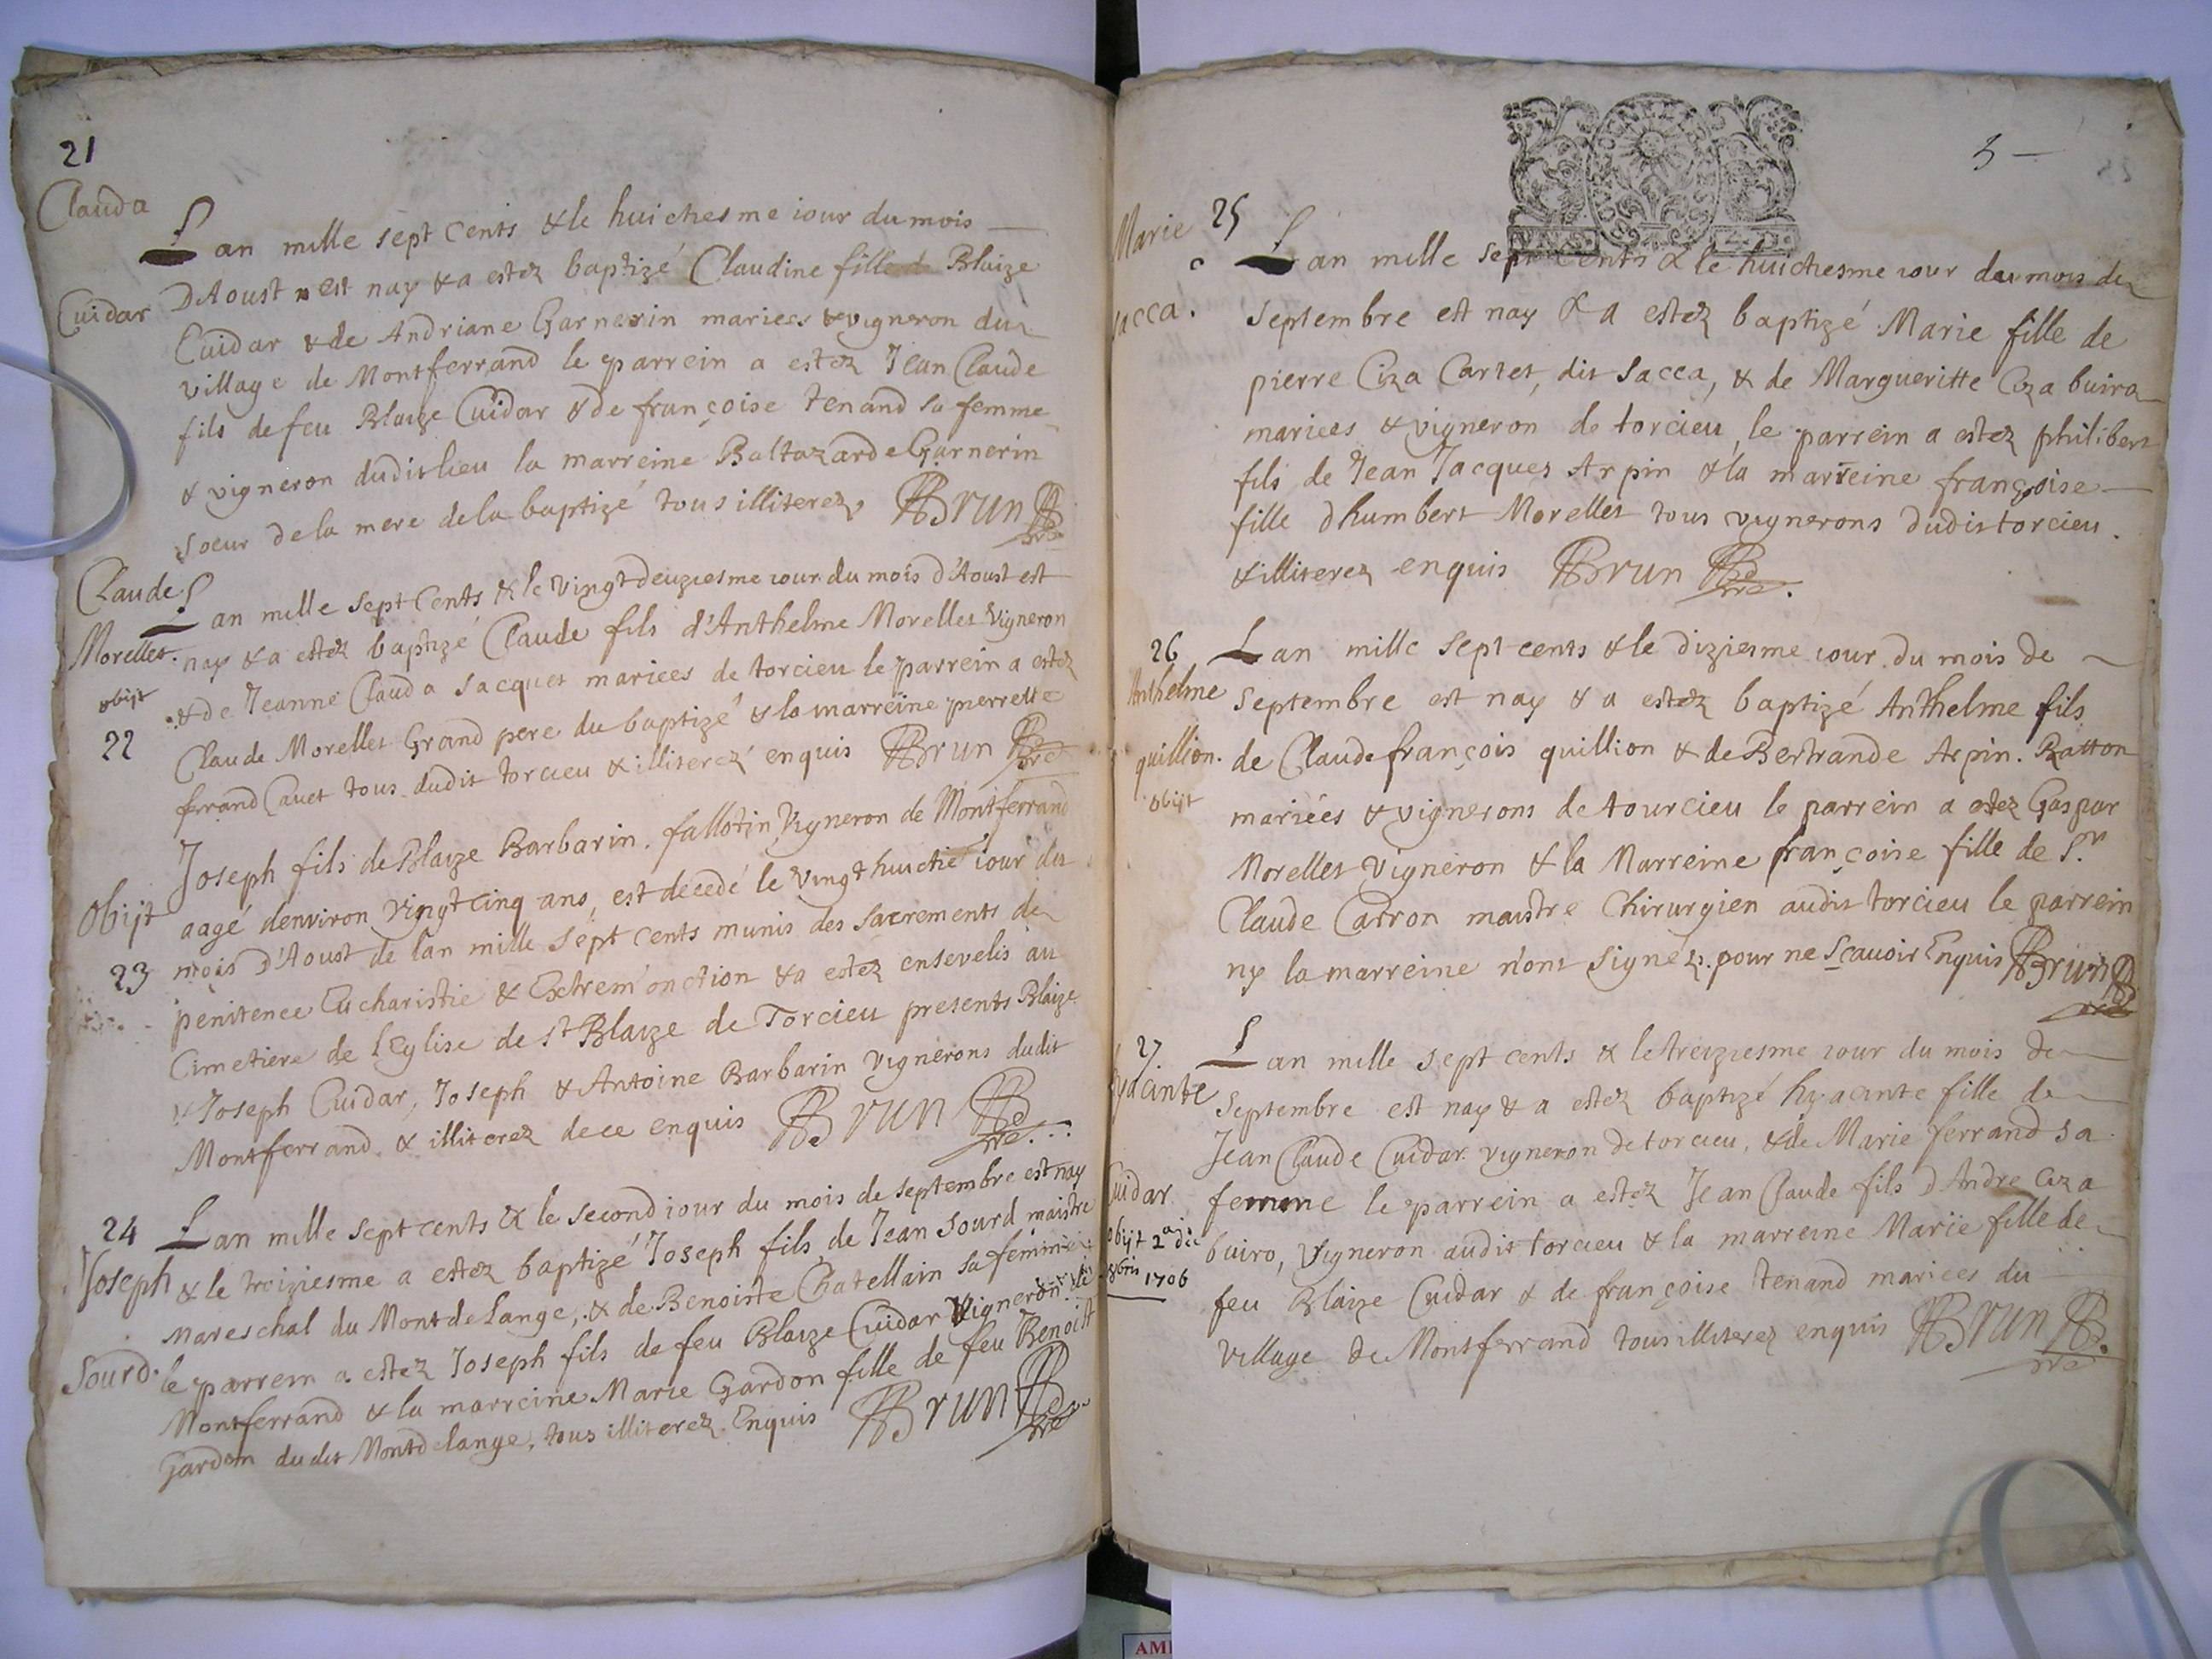 21
Clauda
Cuidar
Lan mille sept cents & le huichesme iour du mois
D'Aoust est nay & a estez baptizé Claudine fille de Blaize
Cuidar & de Andriane Garnerin mariees & vigneron du
village de Montferrand le parrein a estez Jean Claude
fils de feu Blaize Cuidar & de françoise Tenand sa femme
& vigneron dudit lieu la marreine Baltazarde Garnerin
soeur de la mere de la baptizé tous illiterez Brun
Claude
Morellet.
obijt
22
Lan mille sept cents & le vingt deuziesme iour du mois d'Aoust est
nay & a estez baptizé Claude fils d'Anthelme Morellet vigneron
& de Jeanne Clauda Jacquet mariees de torcieu le parrein a estez
Claude Morellet Grand pere du baptizé & la marreine pierrette
ferrand Cavet tous dudit torcieu & illiterez enquis Brun
obijt
23
Joseph fils de Blaize Barbarin. fallotin vigneron de Montferrand
aagé denviron vingt cinq ans, est decedé le vingt huictie iour du
mois D'Aoust de lan mille sept cents munis des sacrements de
penitence Eucharistie & Extrem'onction & a estez ensevelis au
Cimetiere de lEglise de st Blaize de Torcieu presents Blaize
& Joseph Cuidar, Joseph & Antoine Barbarin vignerons dudit
Montferrand & illiterez de ce enquis Brun
24
Joseph
Sourd.
Lan mille sept cents & le second iour du mois de septembre est nay
& le troiziesme a estez baptizé Joseph fils de Jean Sourd maistre
Mareschal du Mont de Lange, & de Benoiste Chatellain sa femme
le parrein a estez Joseph fils de feu Blaize Cuidar vigneron de
Montferrand & la marreine Marie Gardon fille de feu Benoist
Gardon dudit Montdelange, tous illiterez Enquis Brun
3
Marie
25
sacca.
Lan mille sept cents & le huichesme iour du mois de
Septembre est nay & a estez baptizé Marie fille de
pierre Ciza Cartet, dit sacca, & de Margueritte Ciza buiro
mariees & vigneron de torcieu, le parrein a estez philibert
fils de Jean Jacques Arpin & la marreine françoise
fille dhumbert Morellet tous vignerons dudit torcieu.
& illiterez enquis Brun
26
Anthelme
quillion.
obijt
Lan mille sept cents & le diziesme iour du mois de
Septembre est nay & a estez baptizé Anthelme fils
de Claude françois quillion & de Bertrande Arpin. Ratton
mariées & vignerons de tourcieu le parrein a estez Gaspar
Morellet vigneron & la Marreine françoise fille de Sr
Claude Carron maistre Chirurgien audit torcieu le parrein
ny la marreine n'ont signéz. pour ne Scavoir Enquis Brun
27
hyacinte
Cuidar
obijt 2a die
8bris 1706
Lan mille sept cents & le treiziesme iour du mois de
Septembre est nay & a estez baptizé hyacinte fille de
Jean Claude Cuidar vigneron de torcieu, & de Marie ferrand sa
femme le parrein a estez Jean Claude fils D'Andre Ciza
buiro, vigneron audit torcieu & la marreine Marie fille de
feu Blaize Cuidar & de françoise Tenand mariees du
village de Montferrand tous illiterez enquis Brun
AMI